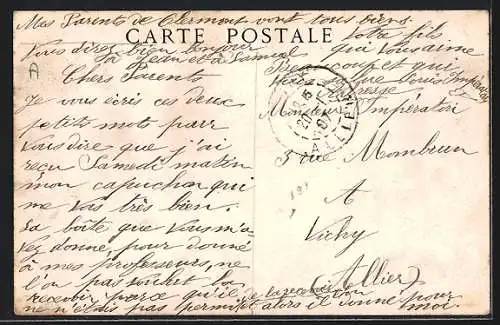 Mes Parents de Clermont vont tous biens.
Vous direz bien bonjour
à Jean et à Samuel
CARTE POSTALE
Chers Parents
Je vous écris ces deux
petits mots pour
vous dire que j'ai
reçu Samedi matin
mon capuchon qui
me va très bien.
La boîte que vous m'a-
vez donné pour donné
à mes professeurs, ne
l'on pas voulu la
recevoir parce qu'il
ne n'était pas permis
alors il donne pour
moi.
Votre fils
qui vous aime
Beaucoup et qui
Louis Impératori
Adresse
Monsieur Impératori
3 rue Mombrun
A
Vichy
(Allier)